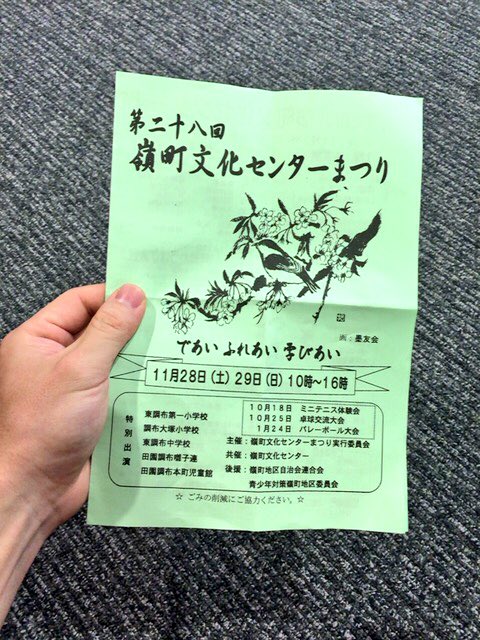 第二十八回
嶺町文化センターまつり
画：墨友会
であい ふれあい 学びあい
11月28日（土）29日（日）10時～16時
特別出演
東調布第一小学校
調布大塚小学校
東調布中学校
田園調布囃子連
田園調布本町児童館
10月18日 ミニテニス体験会
10月25日 卓球交流大会
1月24日 バレーボール大会
主催：嶺町文化センターまつり実行委員会
共催：嶺町文化センター
後援：嶺町地区自治会連合会
青少年対策嶺町地区委員会
☆ ごみの削減にご協力ください。☆